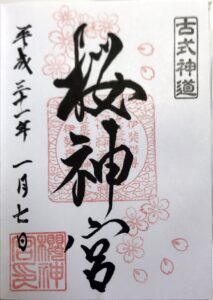 古式神道
桜神宮
平成三十一年一月七日
櫻神宮印